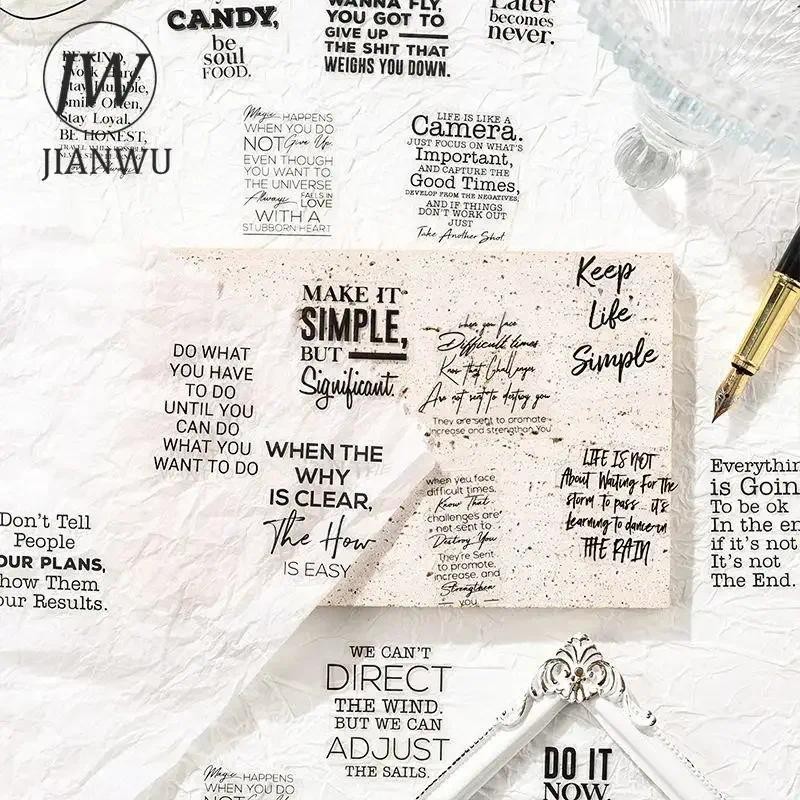 CANDY,
be
soul
FOOD.
WANNA FLY,
YOU GOT TO
GIVE UP
THE SHIT THAT
WEIGHS YOU DOWN.
Later
becomes
never.
JW
JIANWU
BE KIND,
Work Hard,
Stay Humble,
Smile Often,
Stay Loyal,
BE HONEST,
Magic HAPPENS
WHEN YOU DO
NOT Give Up,
EVEN THOUGH
YOU WANT TO.
THE UNIVERSE
Always FALLS IN
LOVE
WITH A
STUBBORN HEART
LIFE IS LIKE A
Camera.
JUST FOCUS ON WHAT'S
Important,
AND CAPTURE THE
Good Times,
DEVELOP FROM THE NEGATIVES,
AND IF THINGS
DON'T WORK OUT
JUST
Take Another Shot.
MAKE IT
SIMPLE,
BUT
Significant.
Keep
Life
Simple
when you face
Difficult times
Know that Challenges
Are not sent to destroy you
They are sent to promote
increase and strengthen You
DO WHAT
YOU HAVE
TO DO
UNTIL YOU
CAN DO
WHAT YOU
WANT TO DO
WHEN THE
WHY
IS CLEAR,
The How
IS EASY
when you face
difficult times,
Know That
challenges are
not sent to
Destroy You
They're Sent
to promote,
increase, and
Strengthen
you
LIFE IS NOT
About Waiting For the
storm to pass it's
learning to dance in
THE RAIN
Everythin
is Goin
To be ok
In the en
if it's not
It's not
The End.
Don't Tell
People
OUR PLANS,
how Them
our Results.
WE CAN'T
DIRECT
THE WIND.
BUT WE CAN
ADJUST
THE SAILS.
Magic HAPPENS
WHEN YOU DO
NOT Give Up
DO IT
NOW.